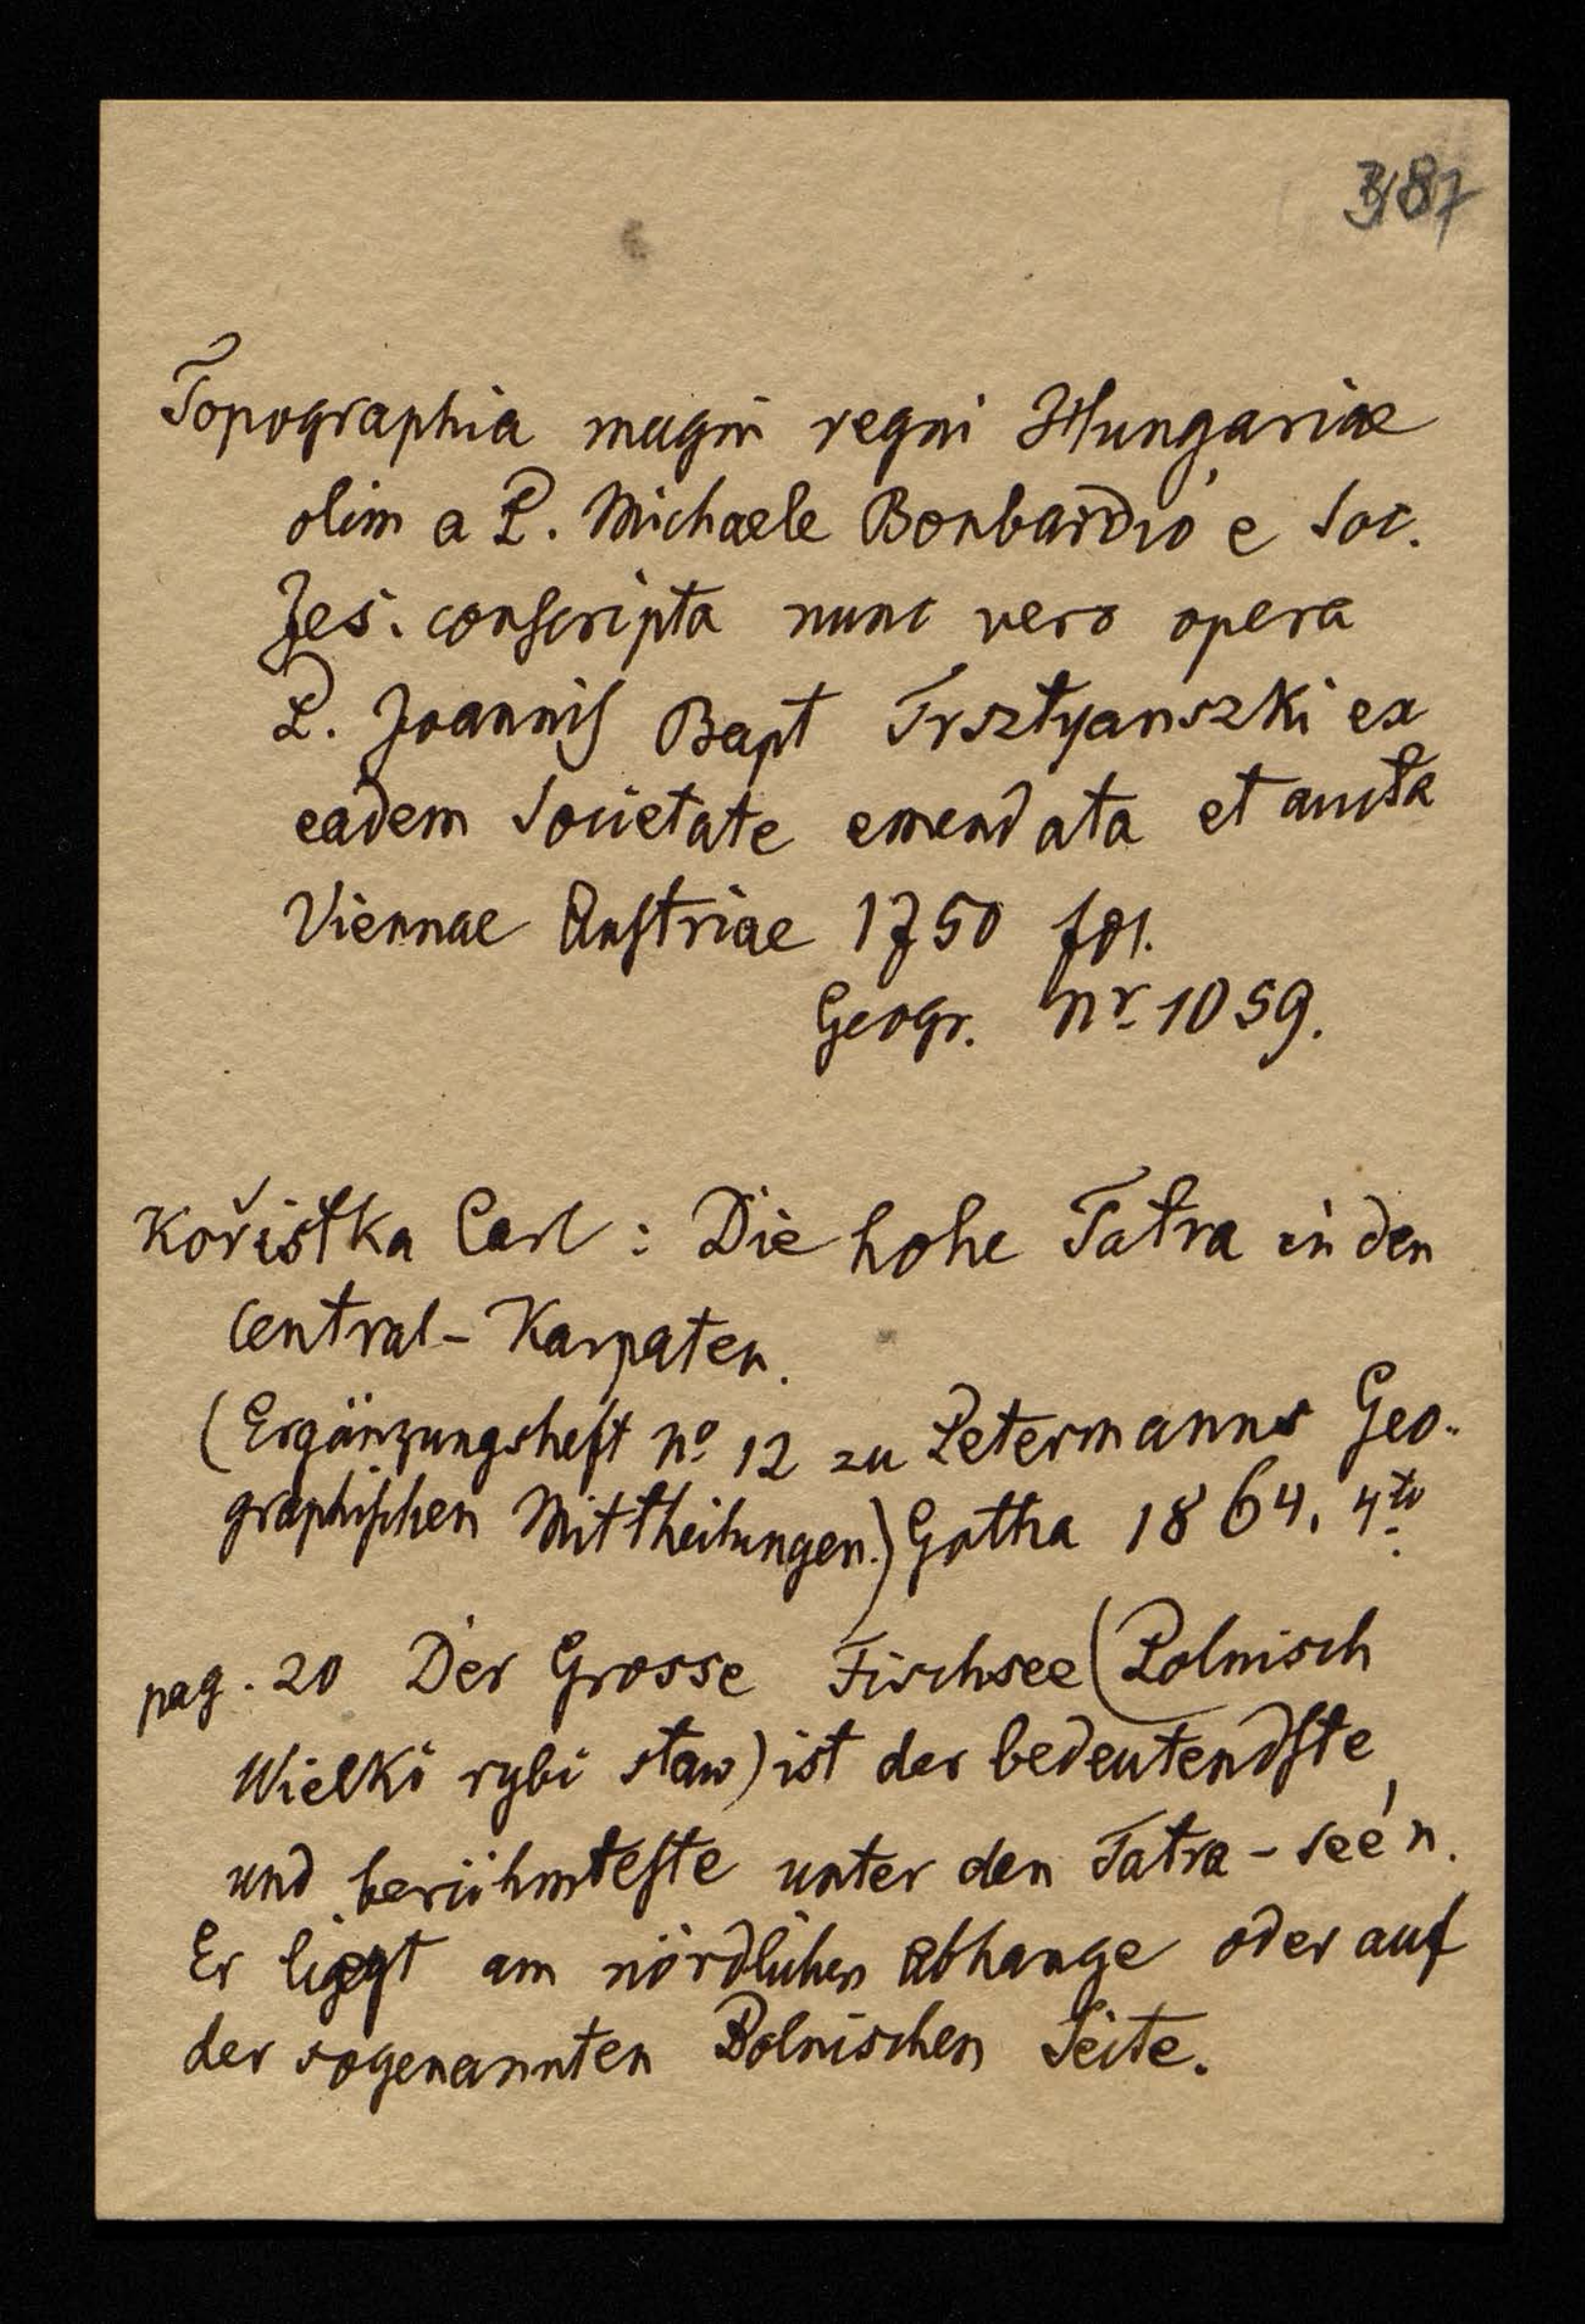 387
Topographia magni regni Hungariae
olim a P. Michaele Bonbardio e Soc.
Jes. conscripta nunc vero opera
P. Joannis Bapt Trsztyanszki ex
eadem Societate emendata et aucta
Viennae Austriae 1750 fol.
Geogr. Nr. 1059.
Kořistka Carl: Die hohe Tatra in den
Central-Karpaten.
(Ergänzungsheft No 12 zu Petermanns Geo-
graphischen Mittheilungen.) Gotha 1864. 4to
pag. 20 Der Grosse Fischsee (Polnisch
Wielki rybi staw) ist der bedeutendste
und berühmteste unter den Tatra-See'n.
Er liegt am nördlichen Abhange oder auf
der sogenannten Polnischen Seite.